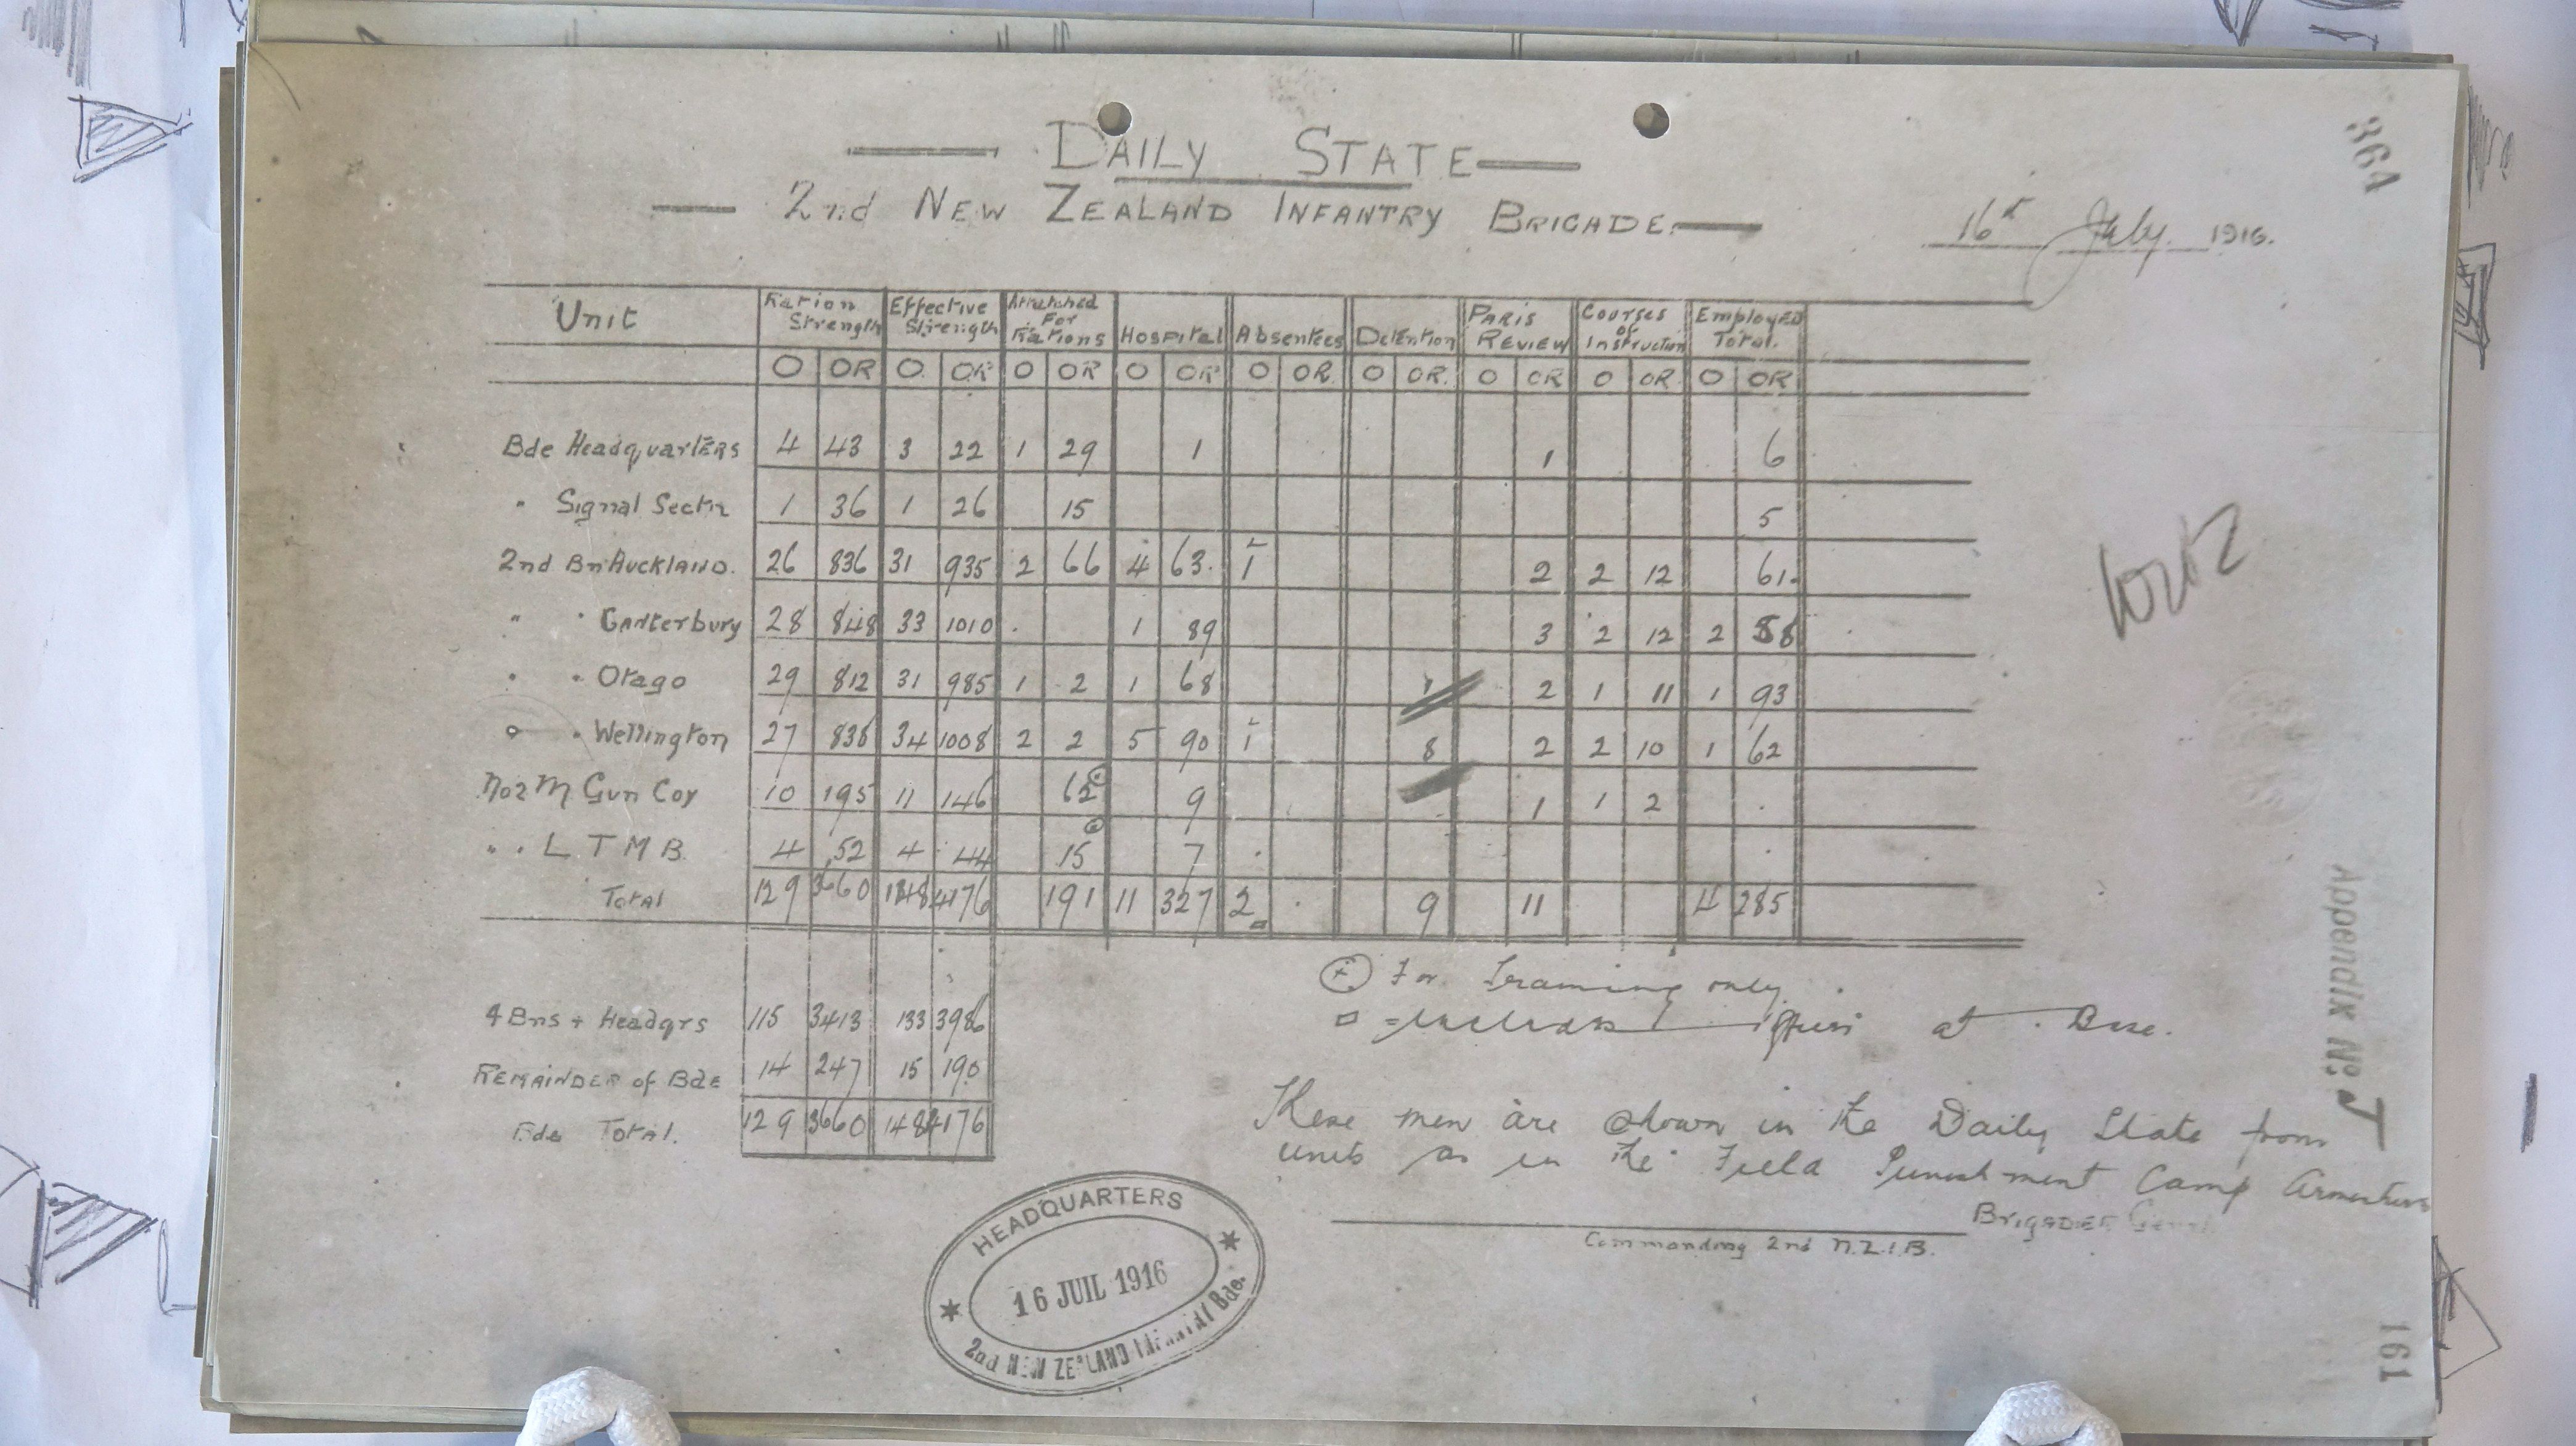 DAILY STATE
2nd NEW ZEALAND INFANTRY BRIGADE.
16th July 1916.
364
Unit Ration Strength Effective Strength Attached For Rations Hospital Absentees Detention PARIS REVIEW Courses of Instruction Employed Total.
O OR O OR O OR O OR O OR O OR O OR O OR O OR
Bde HeadquartERS 4 43 3 22 1 29 1 1 6
" Signal Sectn 1 36 1 26 15 5
2nd Bn AUCKLAND. 26 836 31 935 2 66 4 63 1 2 2 12 61
" " Canterbury 28 848 33 1010 1 89 3 2 12 2 58
" " Otago 29 812 31 985 1 2 1 68 1 2 1 11 1 93
" Wellington 27 838 34 1008 2 2 5 90 1 8 2 2 10 1 62
No2 M Gun Coy 10 195 11 146 62 9 1 1 2
" " L T M B. 4 52 4 44 15 7
Total 129 3660 148 4176 191 11 327 2 9 11 4 285
4 Bns + Headqrs 115 3413 133 3986
REMAINDER of Bde 14 247 15 190
Bde Total. 129 3660 148 4176
For Training only.
at Base.
These men are shown in the Daily State from
units as in the Field Punishment Camp
BRIGADIER Genrl
Commanding 2nd N.Z.I.B.
HEADQUARTERS
16 JUIL 1916
2nd NEW ZEALAND INFANTRY Bde.
Appendix No. J
161